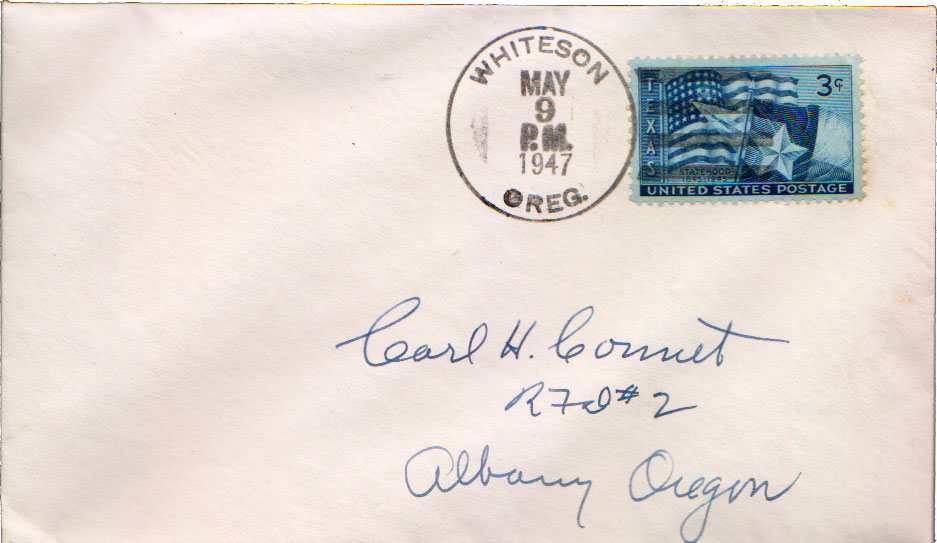 WHITESON
MAY
9
P.M.
1947
OREG.
TEXAS
3¢
STATEHOOD
1845-1945
UNITED STATES POSTAGE
Carl H. Connet
RFD #2
Albany Oregon